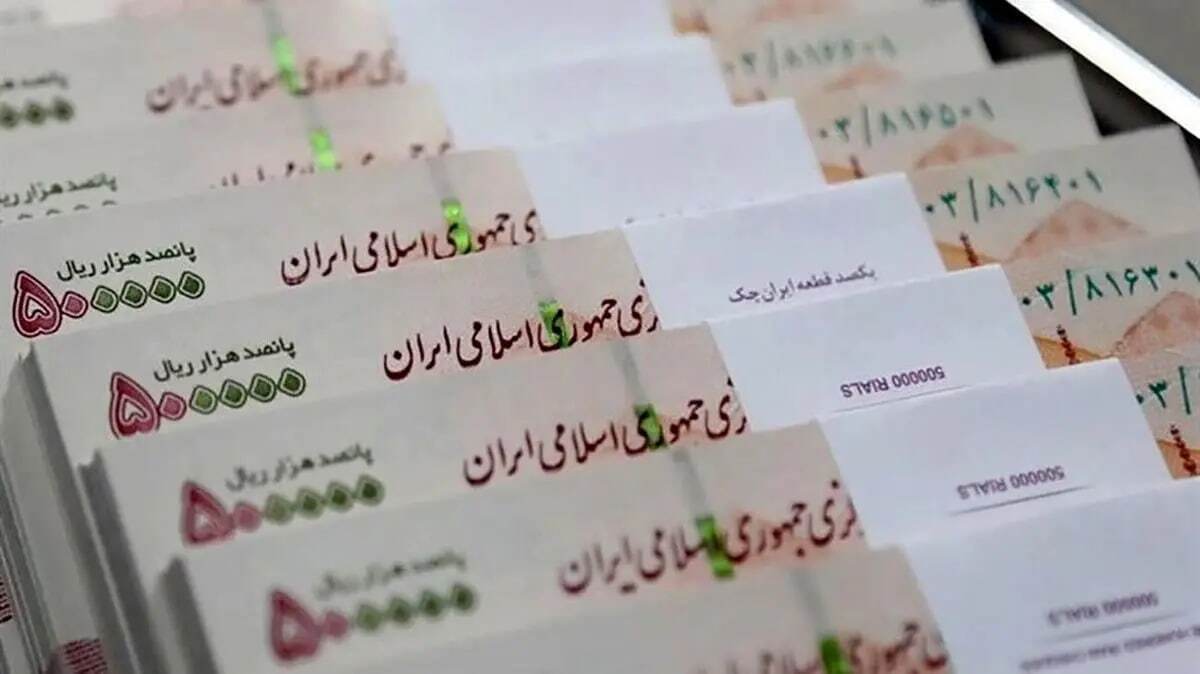 ۰۳/۸۱۶۶۰۱
جمهوری اسلامی ایران
۰۳/۸۱۶۵۰۱
پانصد هزار
۰۳/۸۱۶۴۰۱
پانصد هزار ریال
۵۰۰۰۰۰
جمهوری اسلامی ایران
یکصد قطعه ایران چک
۰۳/۸۱۶۳۰۱
پانصد هزار ریال
۵۰۰۰۰۰
جمهوری اسلامی ایران
500000 RIALS
۰۳/
پانصد هزار ریال
۵۰۰۰۰۰
جمهوری اسلامی ایران
500000 RIALS
پانصد هزار ریال
۵۰۰۰۰۰
جمهوری اسلامی ایران
500000 RIALS